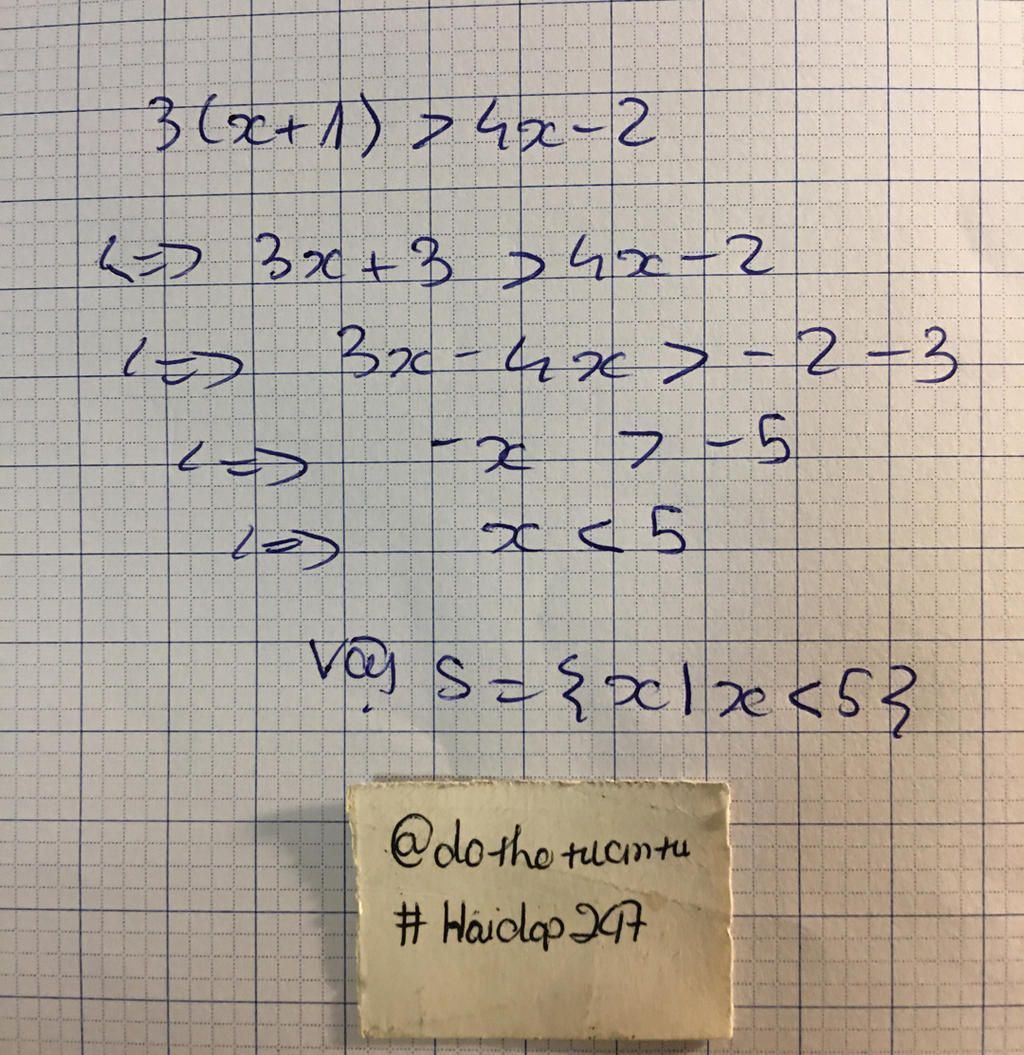 3(x+1) > 4x-2
<=> 3x+3 > 4x-2
<=> 3x-4x > -2-3
<=> -x > -5
<=> x < 5
Vậy S = {x|x<5}
@dothetuantu
#Hoidap247